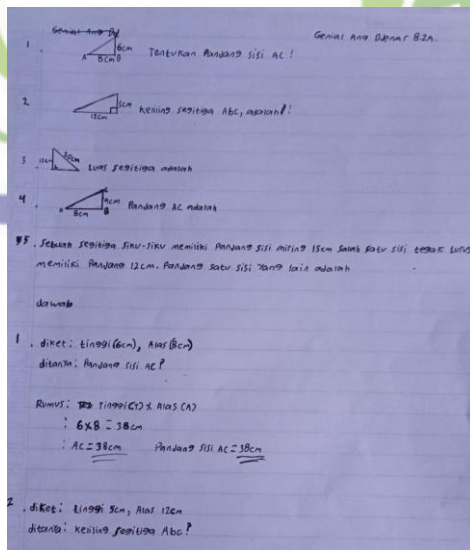 Genial Ang Djenar 82A.
1. 6cm A 8cm B Tentukan Pandang sisi AC!
2 5cm 12cm keliling segitiga Abc, adalah!
3 Luas segitiga adalah
4. A 8cm B 4cm Pandang AC adalah
5. Sebuah segitiga siku-siku memiliki Pandang sisi miring 15cm salah satu sisi tegak lurus
memiliki Pandang 12cm. Pandang satu sisi Yang lain adalah
dawab
1. diket: tinggi (6cm), Alas (8cm)
ditanya: Pandang sisi AC?
Rumus: Tinggi (T) x Alas (A)
: 6x8 = 38cm
: AC = 38cm Pandang sisi AC = 38cm
2. diket: tinggi 5cm, Alas 12cm
ditanya: keliling segitiga Abc?